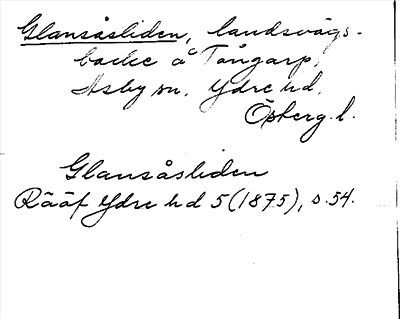 Glansåsliden, landsvägs-
backe å Tångarp,
Asby sn. Ydre hd.
Östergl.
Glansåsliden
Rääf Ydre hd 5 (1875), s. 54.